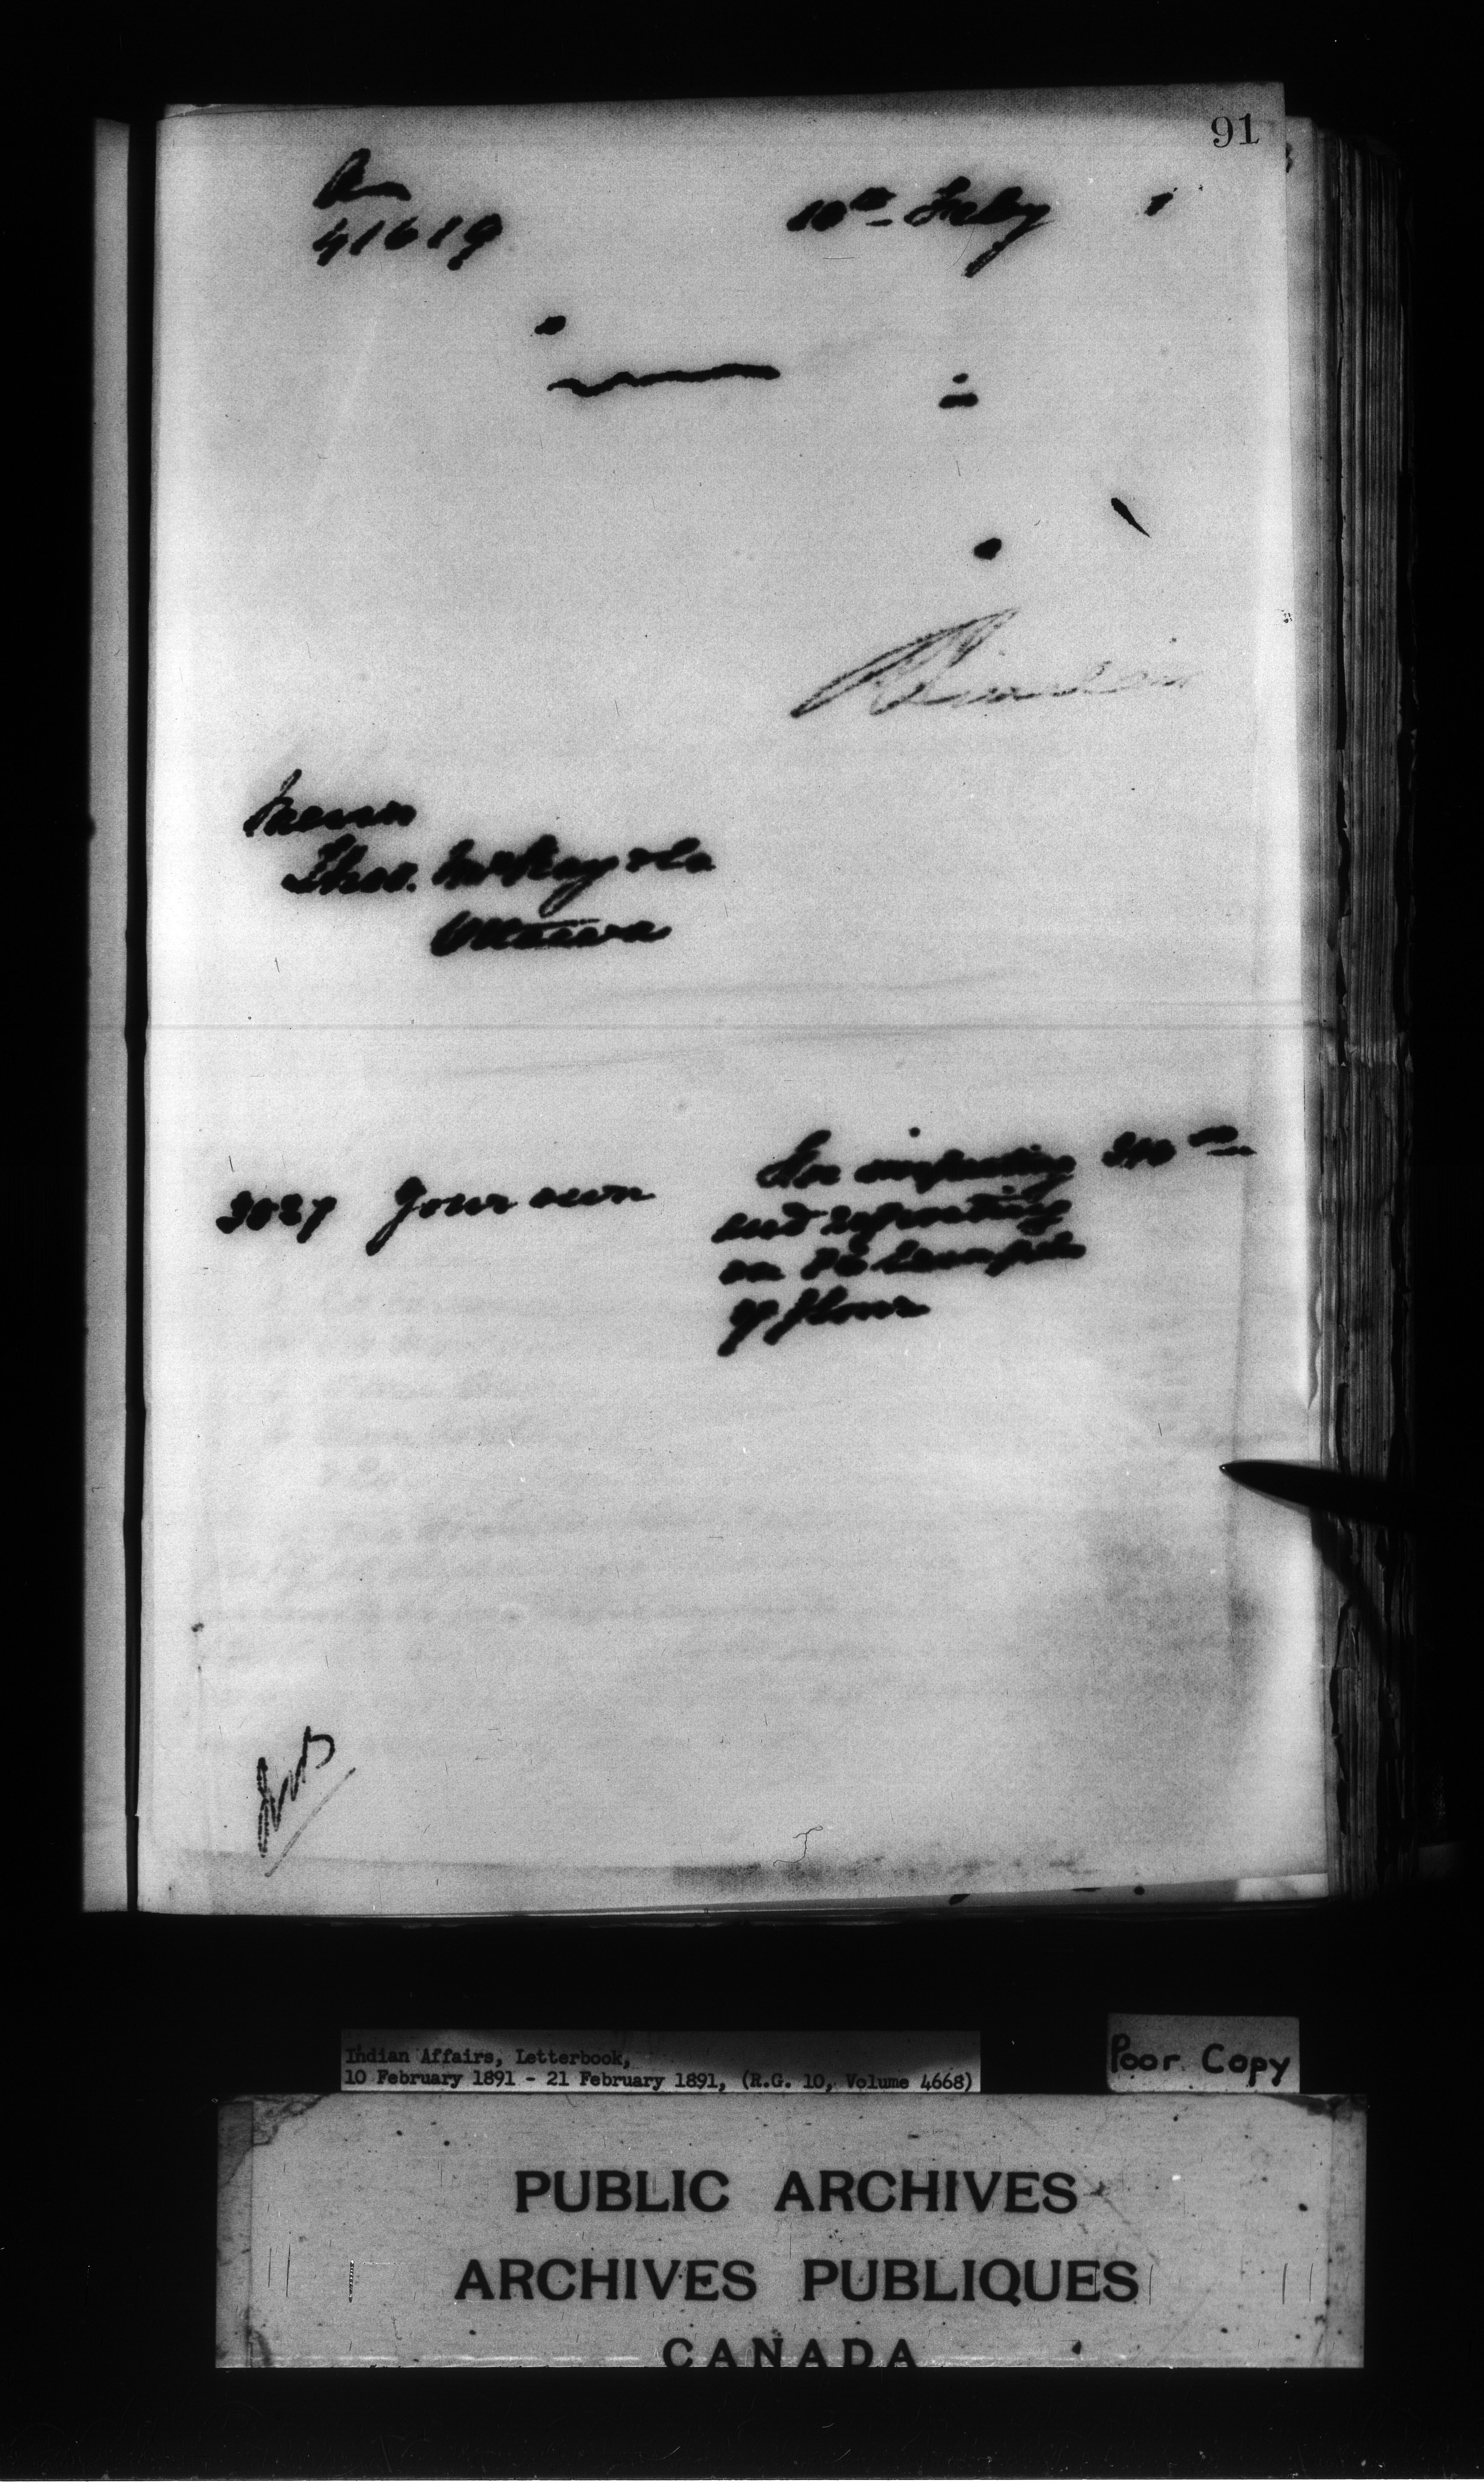 91
A
41619
10th Feby 1
R Sinclair
Messrs
Thos. McKay & Co
Ottawa
3027 Your own
For inspecting
and reporting
on samples
of flour
Indian Affairs, Letterbook,
10 February 1891 - 21 February 1891, (R.G. 10, Volume 4668)
Poor Copy
PUBLIC ARCHIVES
ARCHIVES PUBLIQUES
CANADA